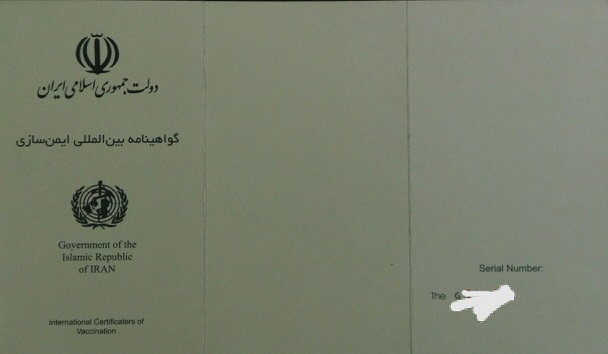 دولت جمهوری اسلامی ایران
گواهینامه بین‌المللی ایمن‌سازی
Government of the
Islamic Republic
of IRAN
International Certificaters of
Vaccination
Serial Number:
The